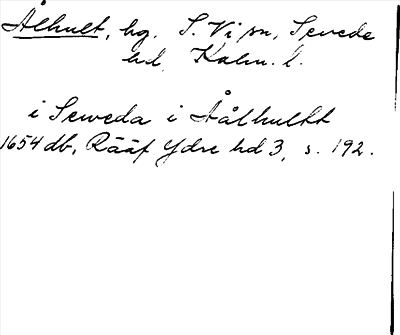 Ålhult, hg. S. Vi sn, Sevede
hd, Kalm. l.
i Seweda i Åålhultt
1654 db, Rääf Ydre hd 3, s. 192.